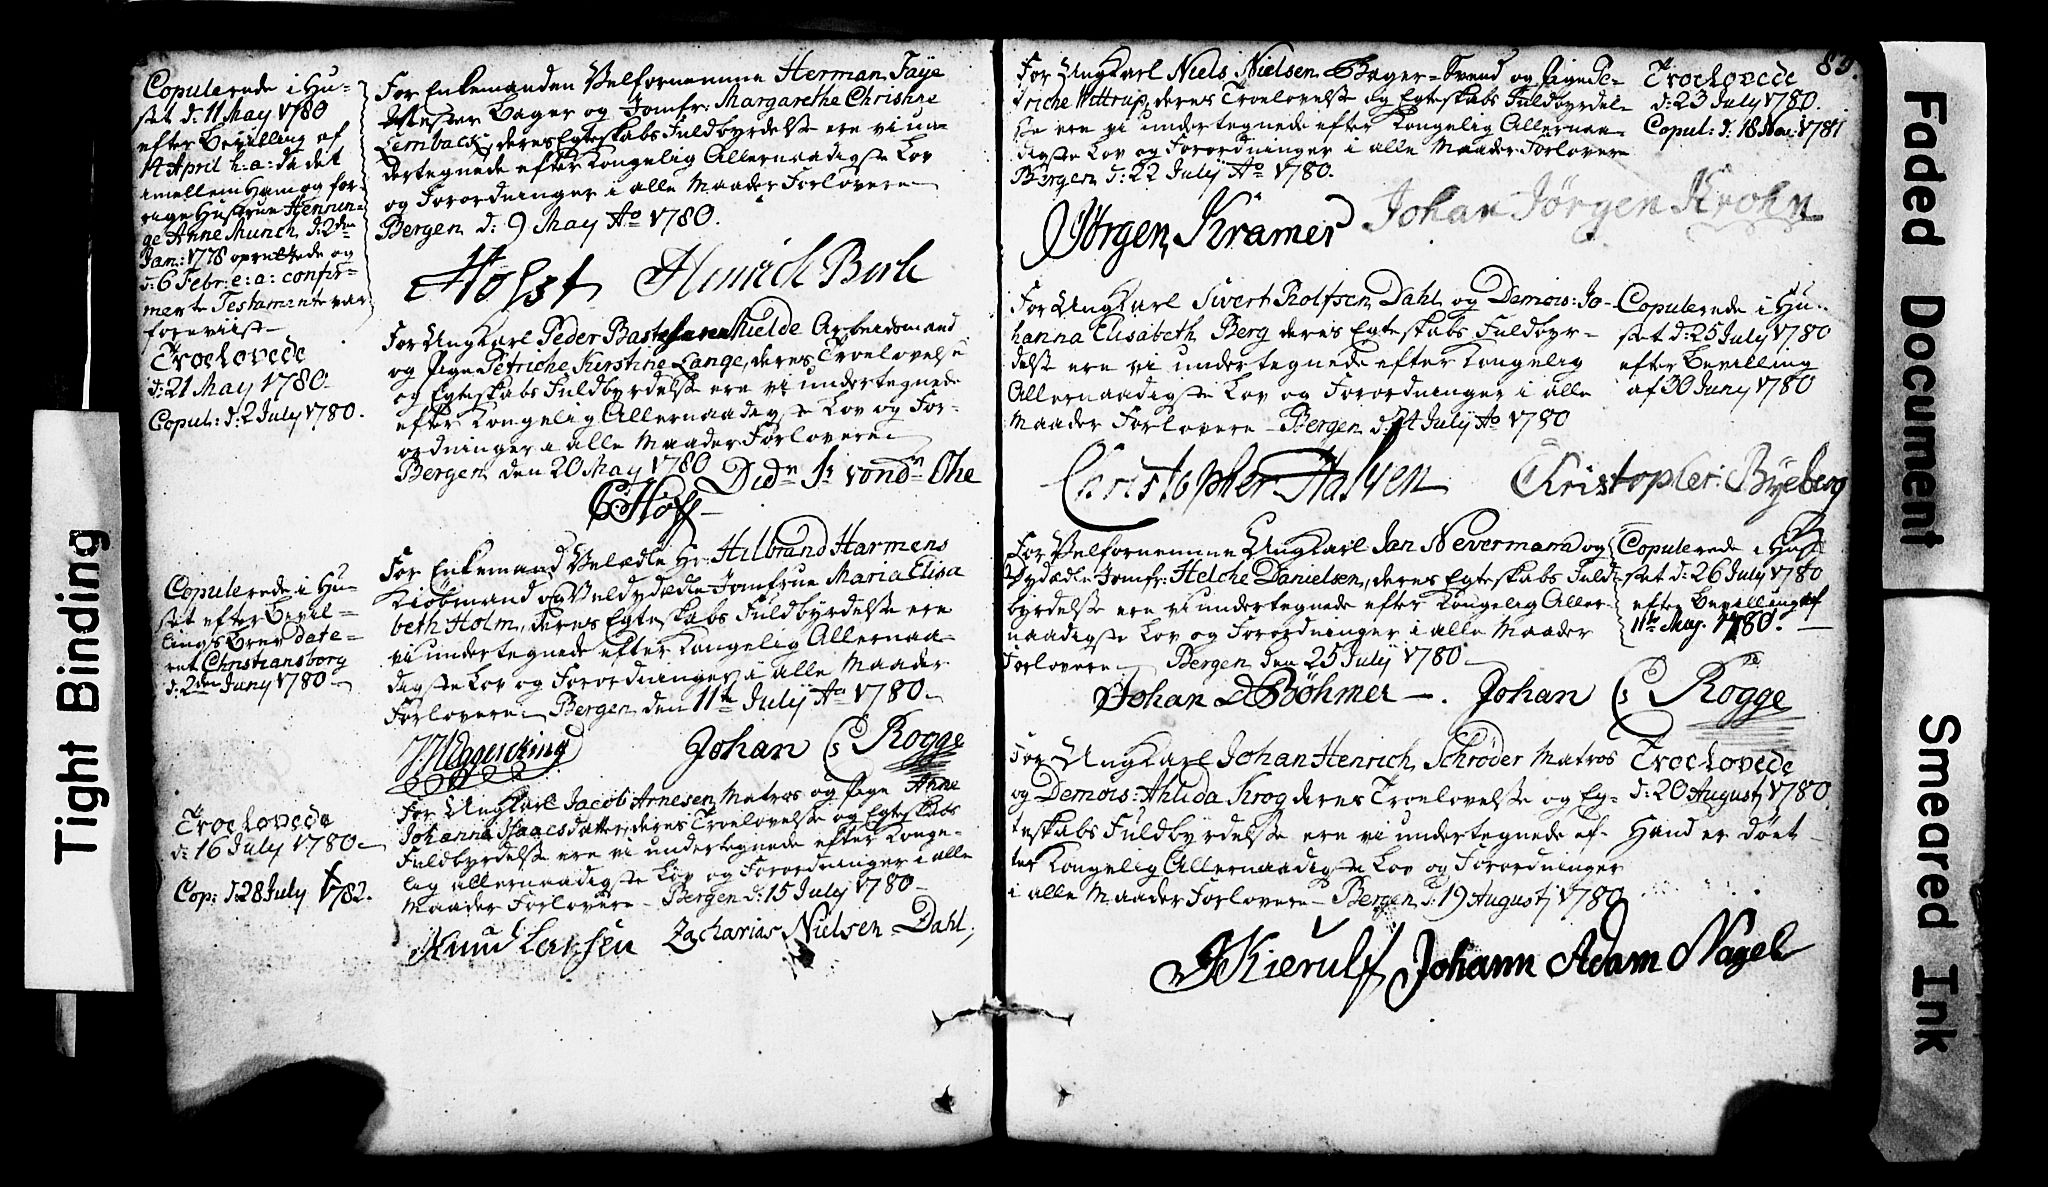 Copulerede i Hu-
set d: 11 May 1780
efter Bevilling af
14 April h: a: da det
imellem Ham og for-
rige Hustrue Hennin-
ge Anne Munch d: 2den
Jan: 1778 oprettede og
d: 6 Febr: e: a: confir-
merte Testamente var
foreviist
For Enkemanden Velfornemme Herman Faÿe
Mester Bager og Jomfr: Margarethe Christine
Lembach, deres Egteskabs Fuldbyrdelse ere vi un-
dertegnede efter Kongelig Allernaadigste Lov
og Forordninger i alle Maader Forlovere
Bergen d: 9 May Ao 1780.
Holst Henrich
Troelovede
d: 21 May 1780
Copul: d: 2 July 1780.
For Ungkarl Peder Kielde Arbeidsmand
og Pige Petriche Kirstine Lange, deres Troelovelse
og Egteskabs Fuldbyrdelse ere vi undertegnede
efter Kongelig Allernaadigste Lov og For-
ordninger i alle Maader Forlovere
Bergen den 20 May 1780
Copulerede i Hu-
set efter Bevil-
lings Brev date-
ret Christiansborg
d: 2den Juny 1780
For Enkemand Velædle Hr. Hilbrand Harmens
Kiöbmand og Veldydædle Jomfrue Maria Elisa
beth Holm, deres Egteskabs Fuldbyrdelse ere
vi undertegnede efter Kongelig Allernaa-
digste Lov og Forordninger i alle Maader
Forlovere Bergen den 11te Julÿ Ao 1780
Johan C Rogge
Troelovede
d: 16 July 1780
Cop: d: 28 July 1782.
For Ungkarl Jacob Arnesen Matros og Pige Anne
Johanna Isaacsdatter, deres Troelovelse og Egteskabs
Fuldbyrdelse ere vi undertegnede efter Konge-
lig allernaadigste Lov og Forordninger i alle
Maader Forlovere Bergen d: 15 July 1780
Knud Larsen Zacharias Nielsen Dahl,
For Ungkarl Niels Nielsen Bager-Svend og Pige De-
driche Wittrup, deres Troelovelse og Egteskabs Fuldbyrdel-
se ere vi undertegnede efter Kongelig Allernaa-
digste Lov og Forordninger i alle Maader Forlovere
Bergen d: 22 Julÿ Ao 1780.
Jörgen Kramer Johan Jörgen Krohn
Troelovede
d: 23 July 1780.
Copul: d: 18 Nov: 1781
For Ungkarl Sivert Rolfsen Dahl og Demois: Jo-
hanna Elisabeth Berg deres Egteskabs Fuldbyr-
delse ere vi undertegnede efter Kongelig
Allernaadigste Lov og Forordninger i alle
Maader Forlovere Bergen d: 24 July Ao 1780
Copulerede i Hu-
set d: 25 July 1780
efter Bevilling
af 30 Juny 1780
Christopher Christopher
For Velfornemme Ungkarl Jan Nevermann og
Dydædle Jomfr: Helche Danielsen, deres Egteskabs Fuld-
byrdelse ere vi undertegnede efter Kongelig Aller-
naadigste Lov og Forordninger i alle Maader
Forlovere Bergen den 25 Julÿ 1780
Copulerede i Hu-
set d: 26 July 1780
efter Bevilling af
11te May. 1780.
Johan D Böhmer. Johan C Rogge
For Ungkarl Johan Henrich Schröder Matros
og Demois: Ahlida Krog deres Troelovelse og Eg-
teskabs Fuldbyrdelse ere vi undertegnede ef-
ter Kongelig Allernaadigste Lov og Forordninger
i alle Maader Forlovere Bergen d: 19 August 1780
Troelovede
d: 20 August 1780.
Hand er döet
Kierulf Johann Adam Nagel
Tight Binding
Faded Document
Smeared Ink